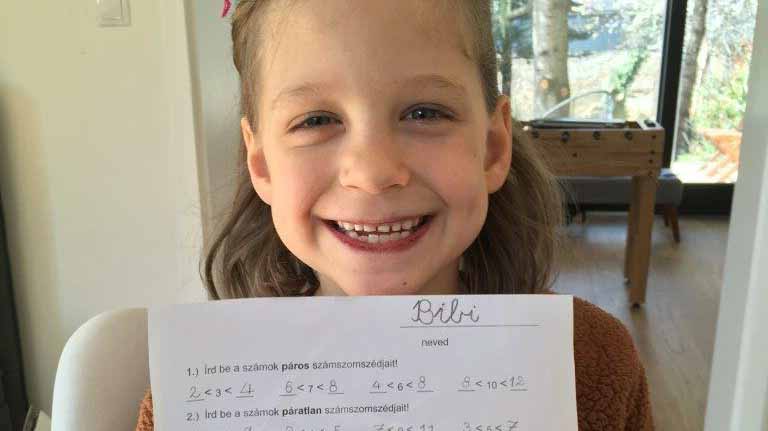 Bibi
neved
1.) Írd be a számok páros számszomszédjait!
2 < 3 < 4 6 < 7 < 8 4 < 6 < 8 8 < 10 < 12
2.) Írd be a számok páratlan számszomszédjait!